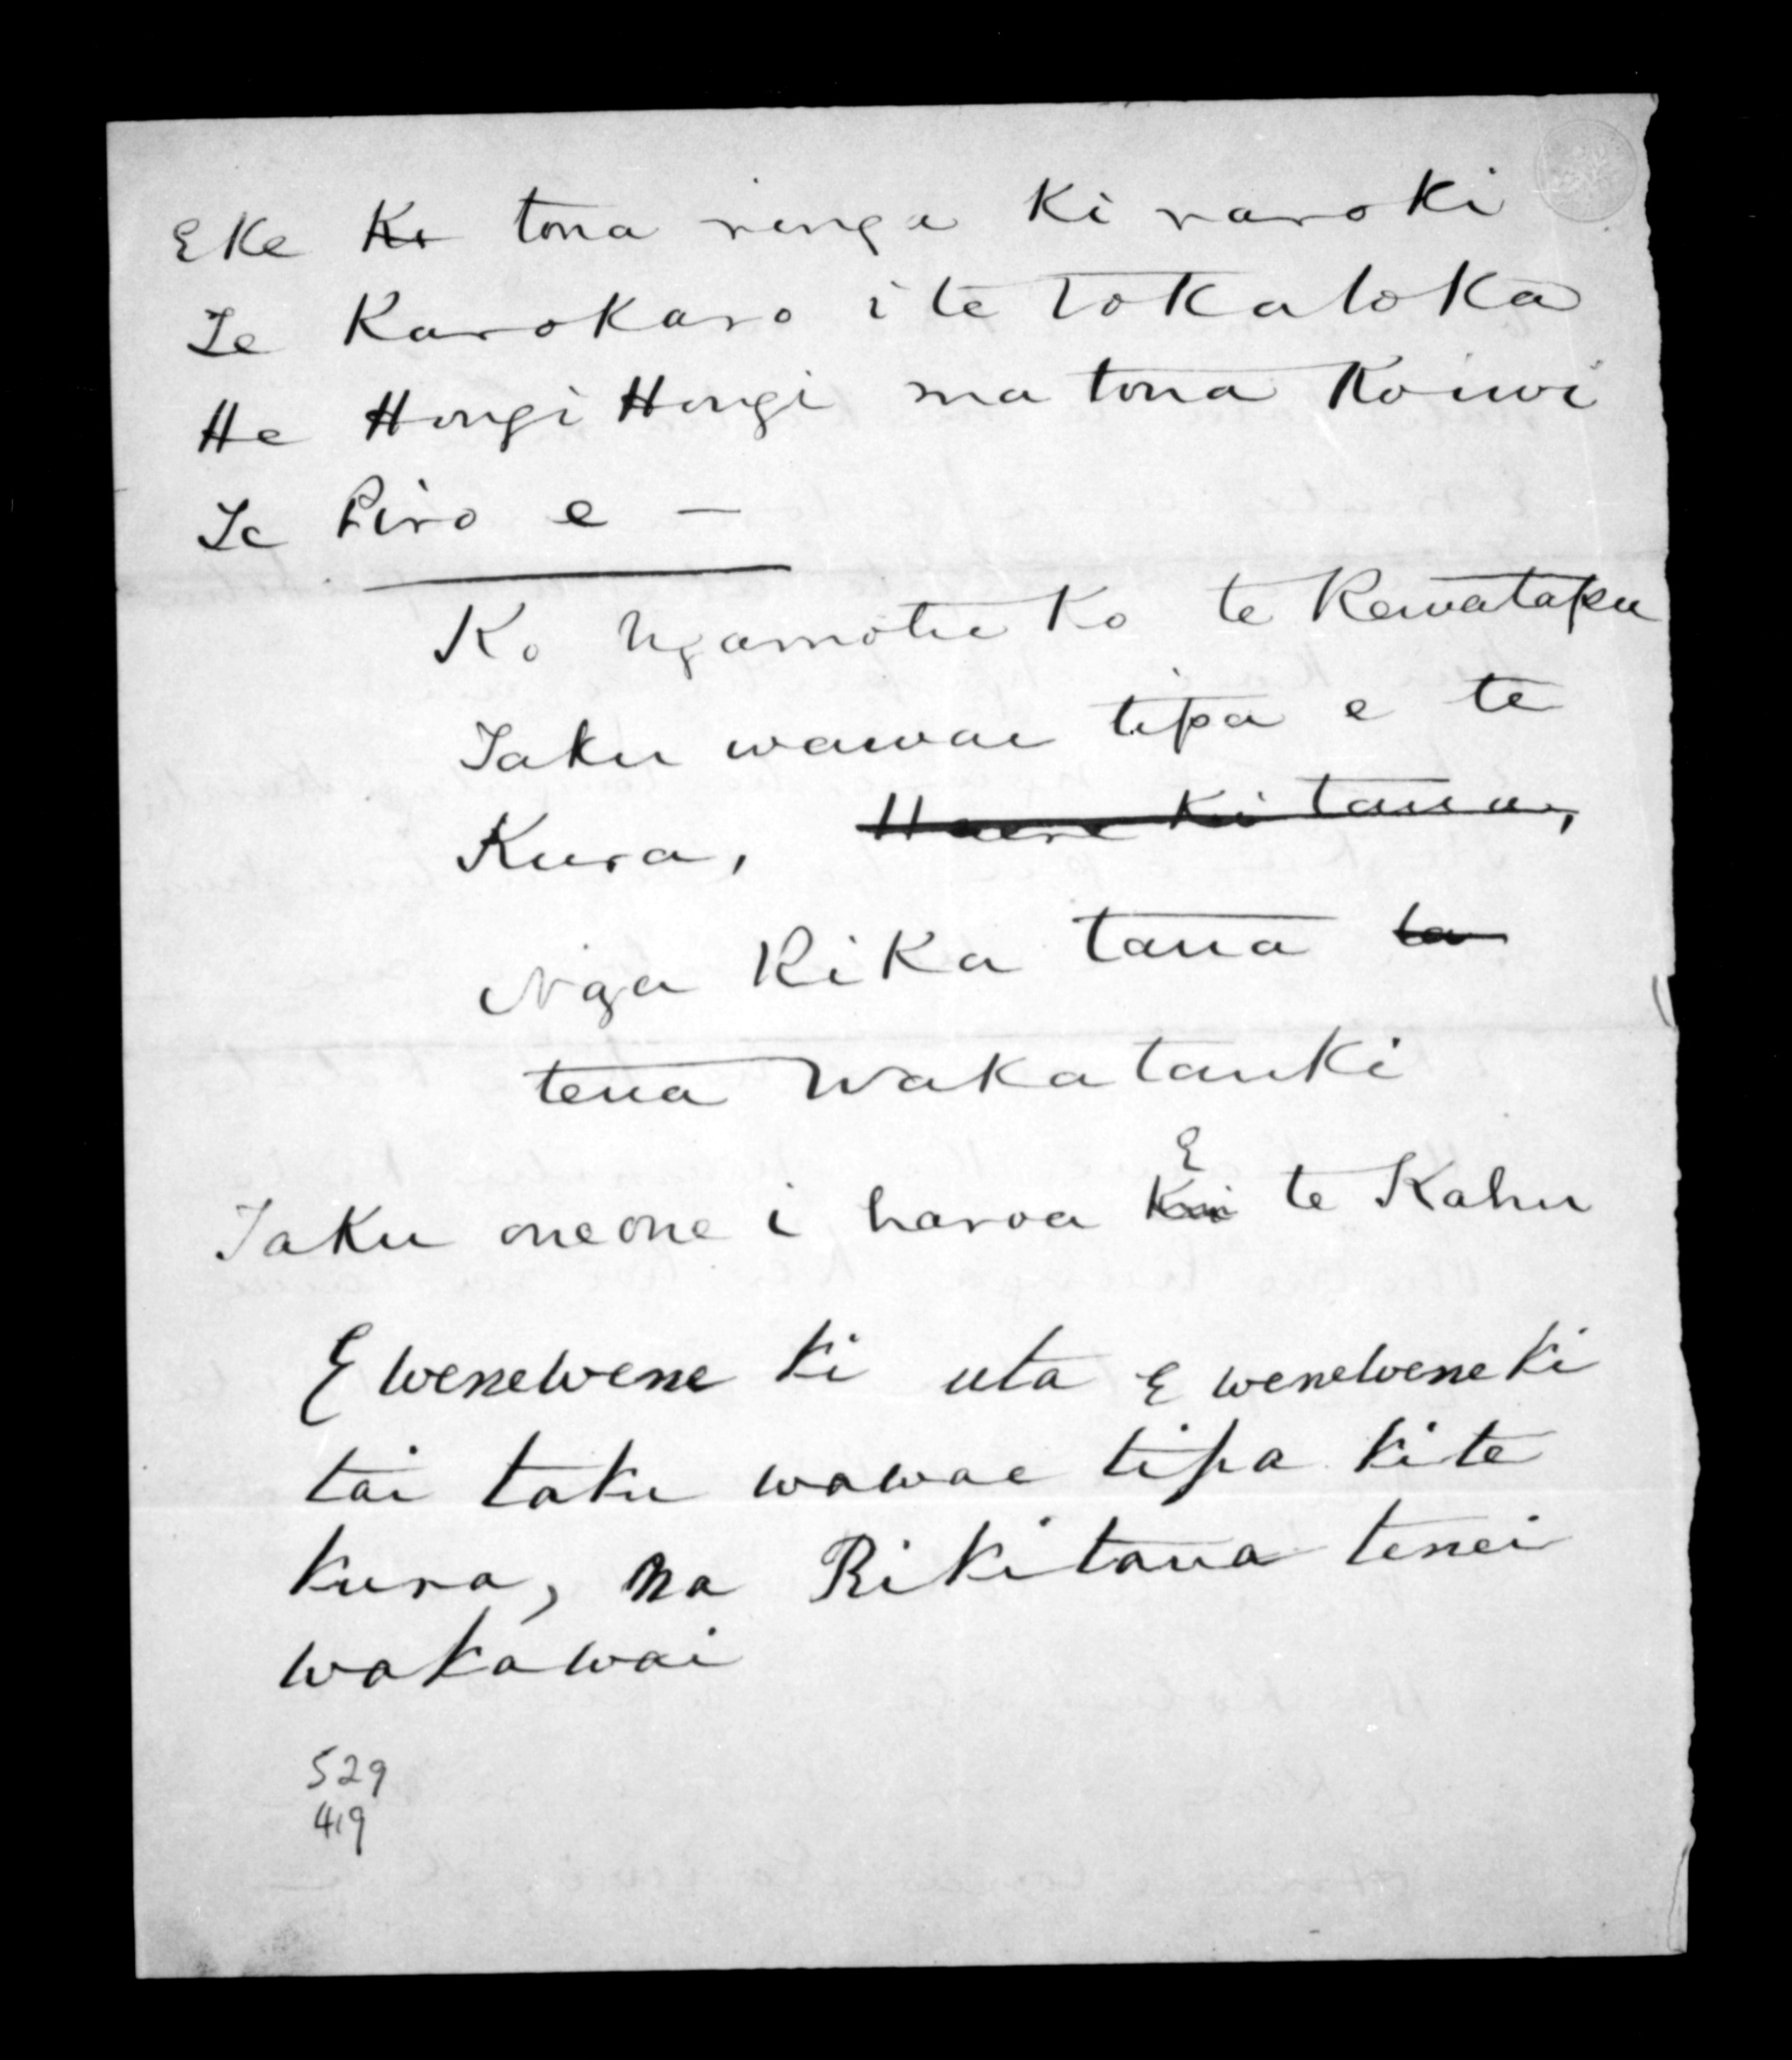 Eke ko tona ringa ki raro ki
Te Karokaro i te Tokatoka
He HongiHongi ma tona Koiwi
Te Piro e —
Ko Ngamotu Ko te Rewatapu
Taku wawae tipa e te
Kura, Haere ki taua,
Nga Rika taua ta
tena Wakatauki
E
Taku oneone i haroa Kai te Kahu
E wenewene ki uta E wenewene ki
tai taku wawae tipa ki te
kura, na Rikitaua tenei
wakawai
529
419